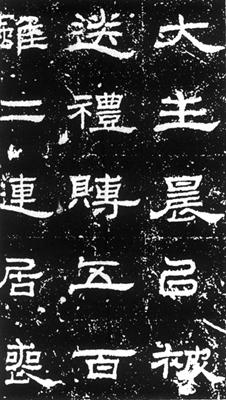 大主晨㠯被
送禮賻五百
雖二連居喪